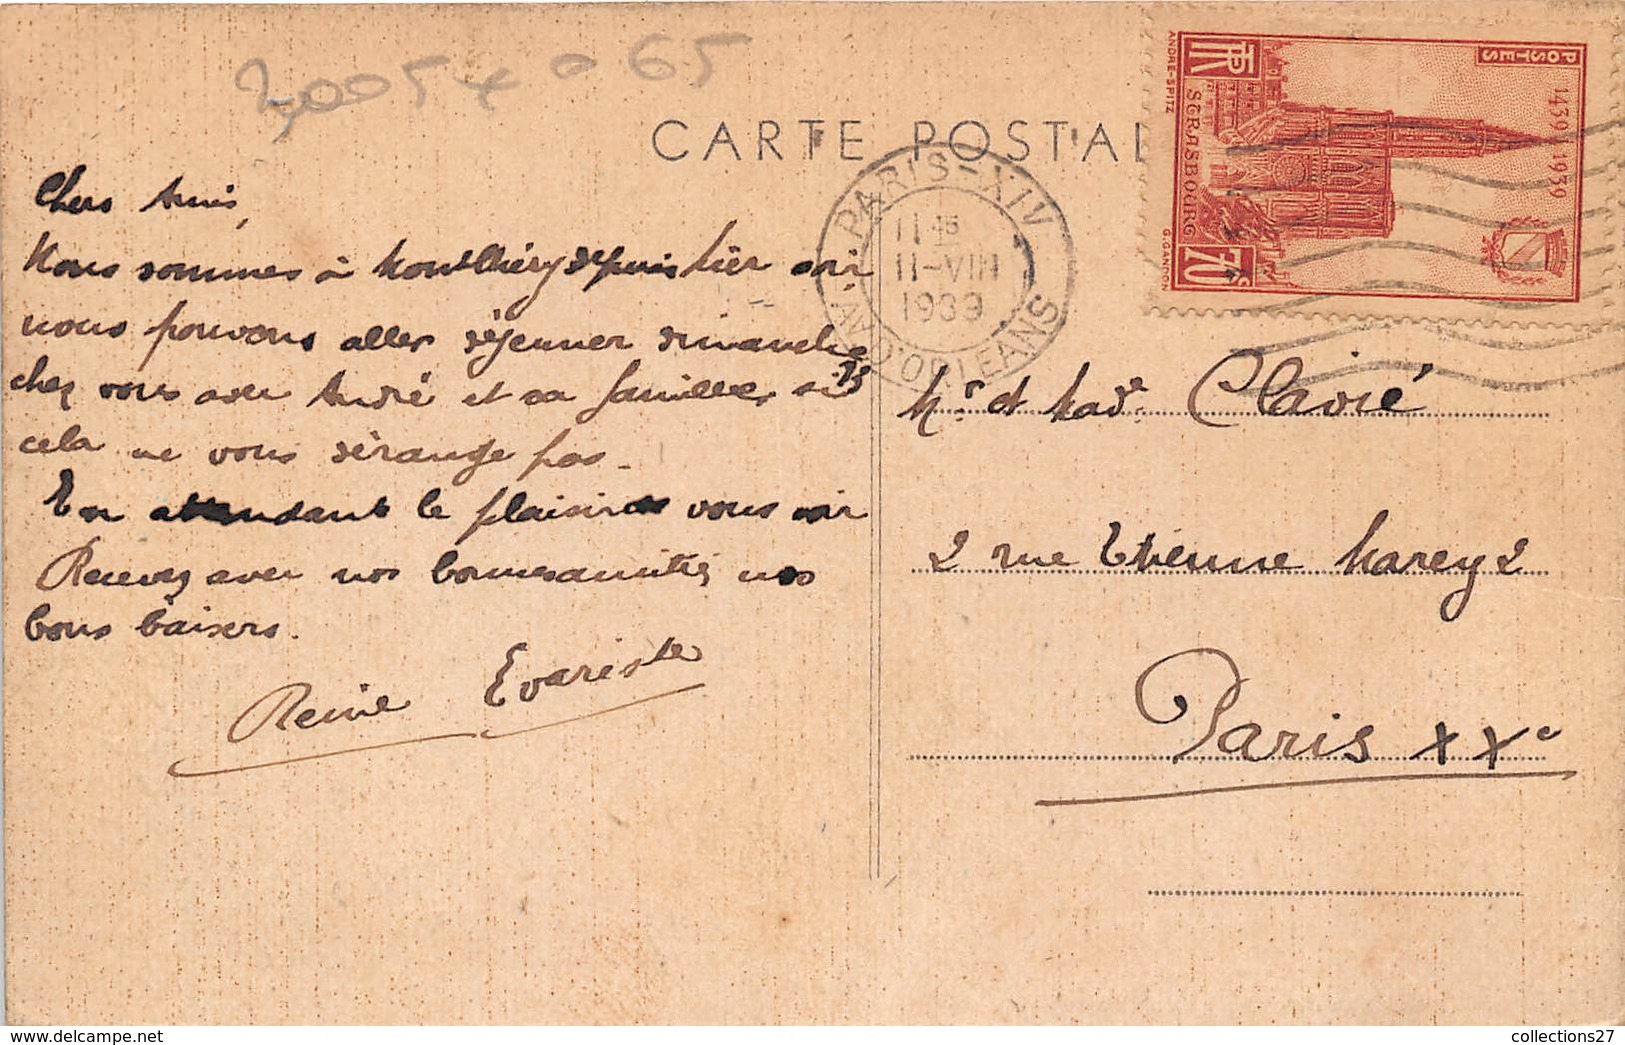 20054 - 65
CARTE POSTAL
Chers Amis,
Nous sommes à Montlhéry depuis hier soir
nous pouvons aller déjeuner dimanche 13
chez vous avec André et sa famille si
cela ne vous dérange pas.
En attendant le plaisir de vous voir
Recevez avec nos bonnes amitiés nos
bons baisers.
Reine Evariste
PARIS-XIV
11 45
11-VIII
1939
AV. D'ORLEANS
POSTES
1439 1939
RF
STRASBOURG
70c
ANDRE-SPITZ
G.GANDON
Mr et Made Clavié
2 rue Etienne Marey 2
Paris XXe
collections27